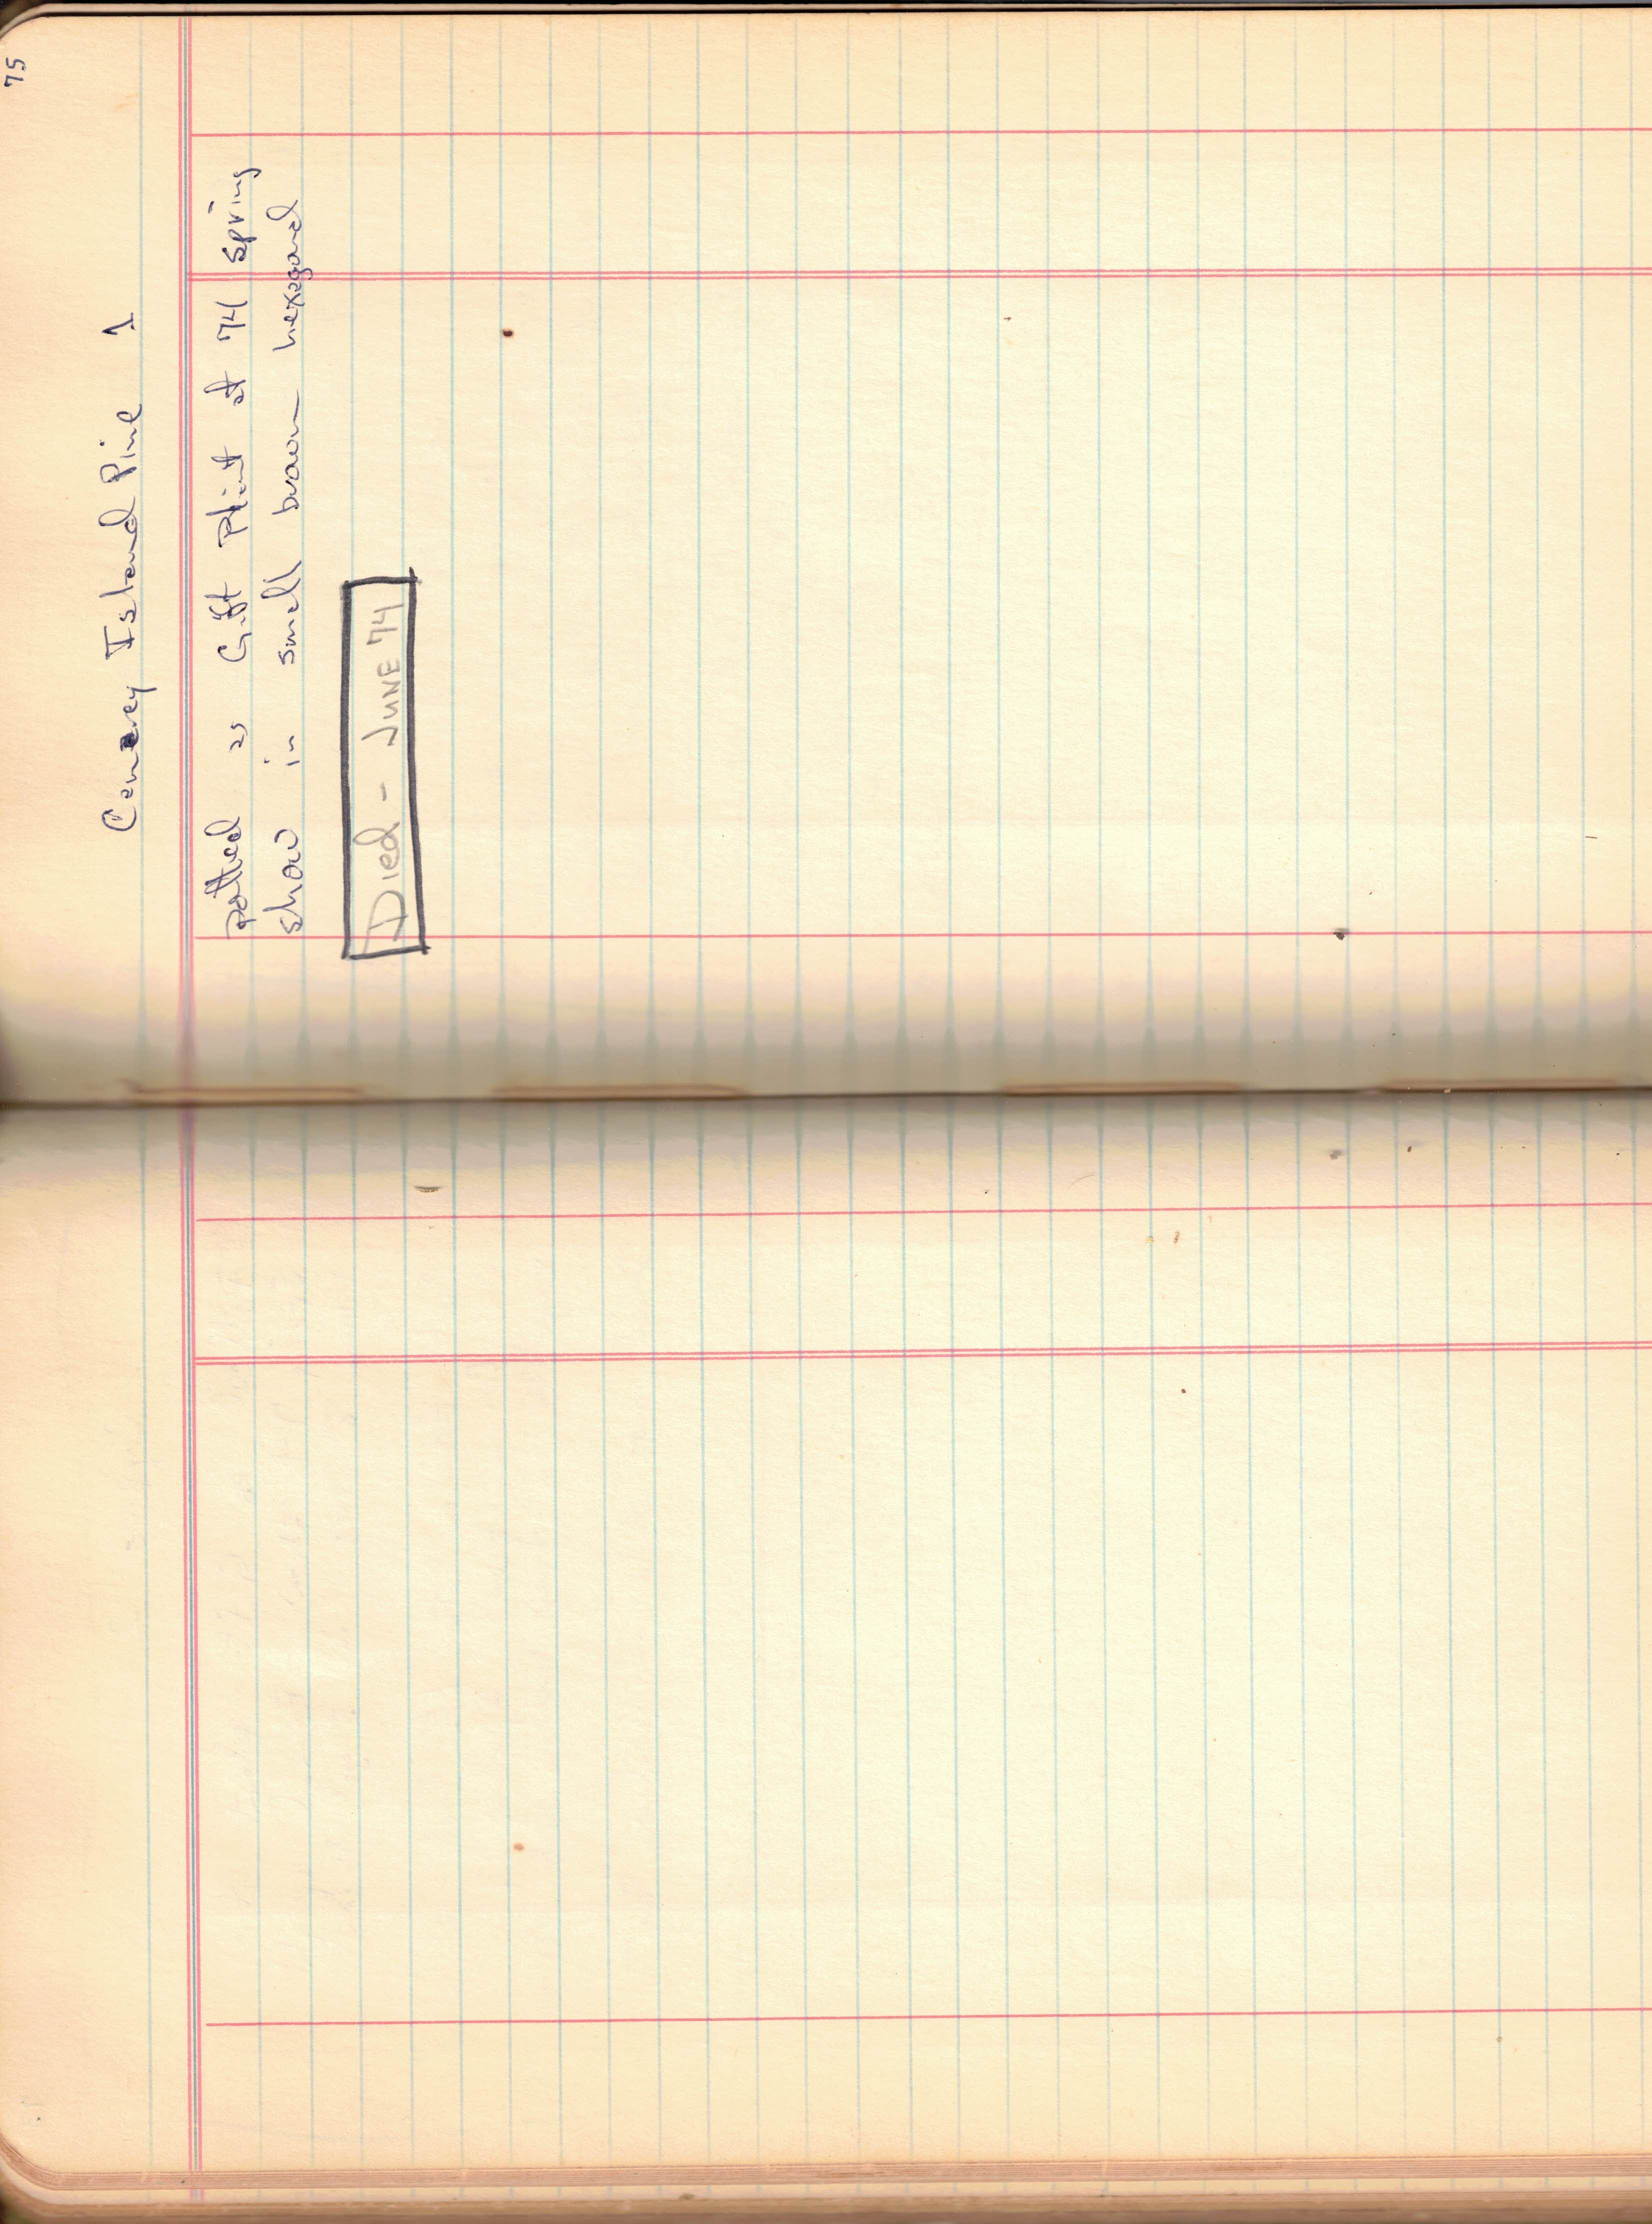 75
Canarey Island Pine 1
potted as Gift Plant at 74 spring
show in small brown hexagonal
Died - JUNE 74